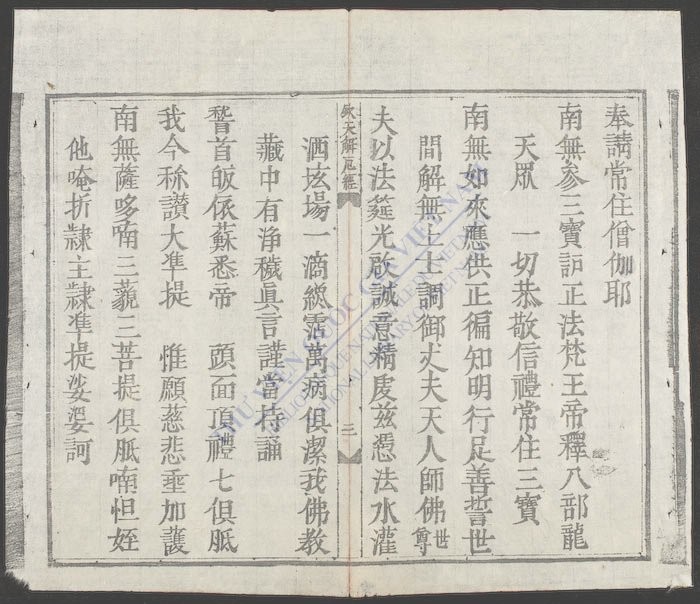 奉請常住僧伽耶
南無參三寶護正法梵王帝釋八部龍
天眾　一切恭敬信禮常住三寶
南無如來應供正徧知明行足善誓世
間解無上士調御丈夫天人師佛世尊
夫以法筵光啟誠意精虔茲憑法水灌
解冤經
三
洒坛場一滴緫霑萬病俱潔我佛教
藏中有淨穢眞言謹當持誦
稽首皈依蘇悉帝　頭面頂禮七俱胝
我今稱讚大準提　惟願慈悲垂加護
南無薩哆喃三藐三菩提俱胝喃怛姪
他唵折隷主隷準提娑婆訶
THƯ VIỆN QUỐC GIA VIỆT NAM